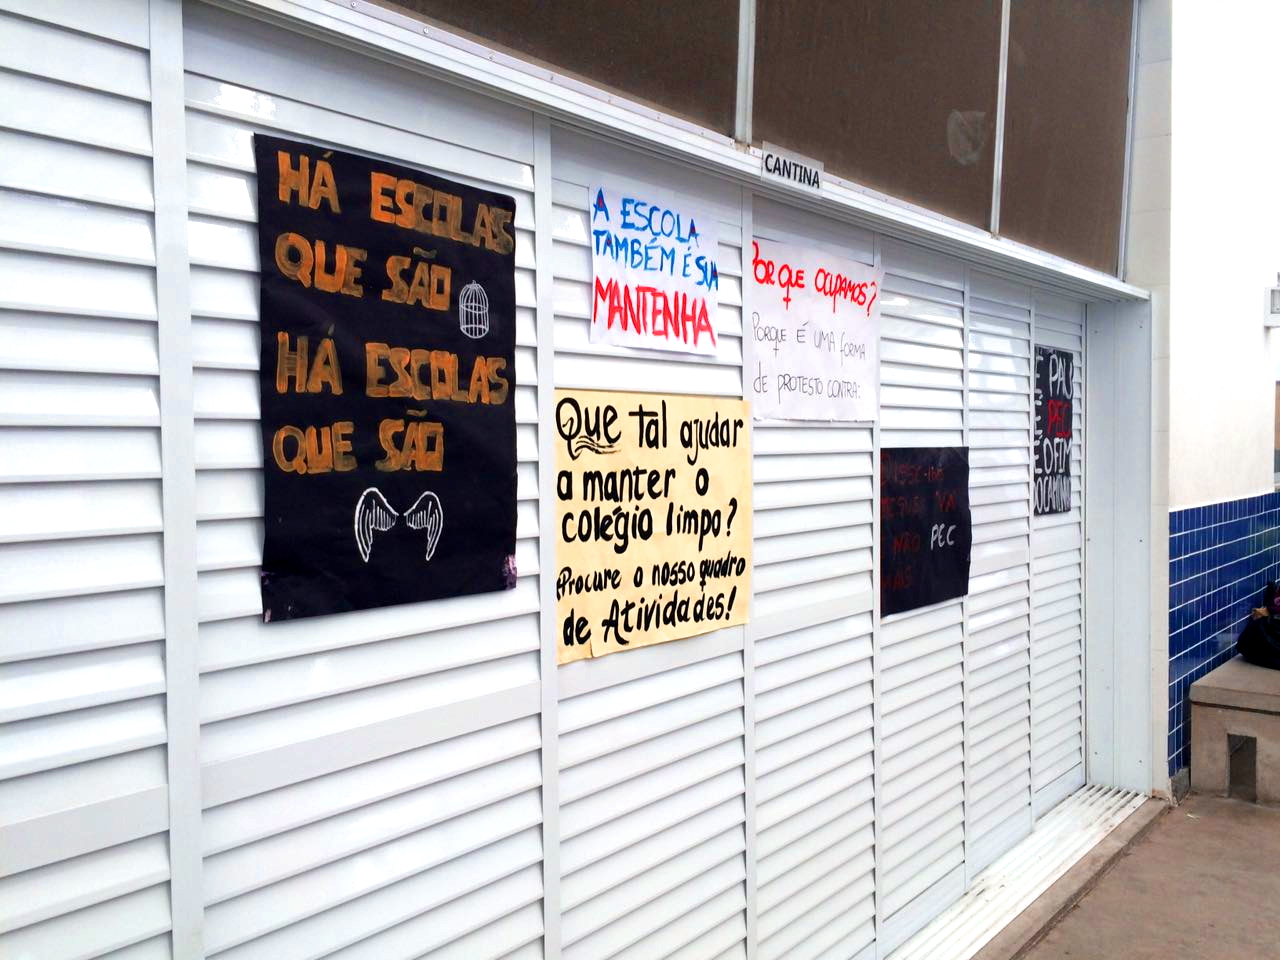 HÁ ESCOLAS
QUE SÃO
HÁ ESCOLAS
QUE SÃO
A ESCOLA
TAMBÉM É SUA
MANTENHA
Que tal ajudar
a manter o
colégio limpo?
Procure o nosso quadro
de Atividades!
CANTINA
Por que ocupamos?
Porque é uma forma
de protesto contra:
VAI
NÃO PEC
MAS
É PAU
É PEC
É O FIM
DO CAMINHO